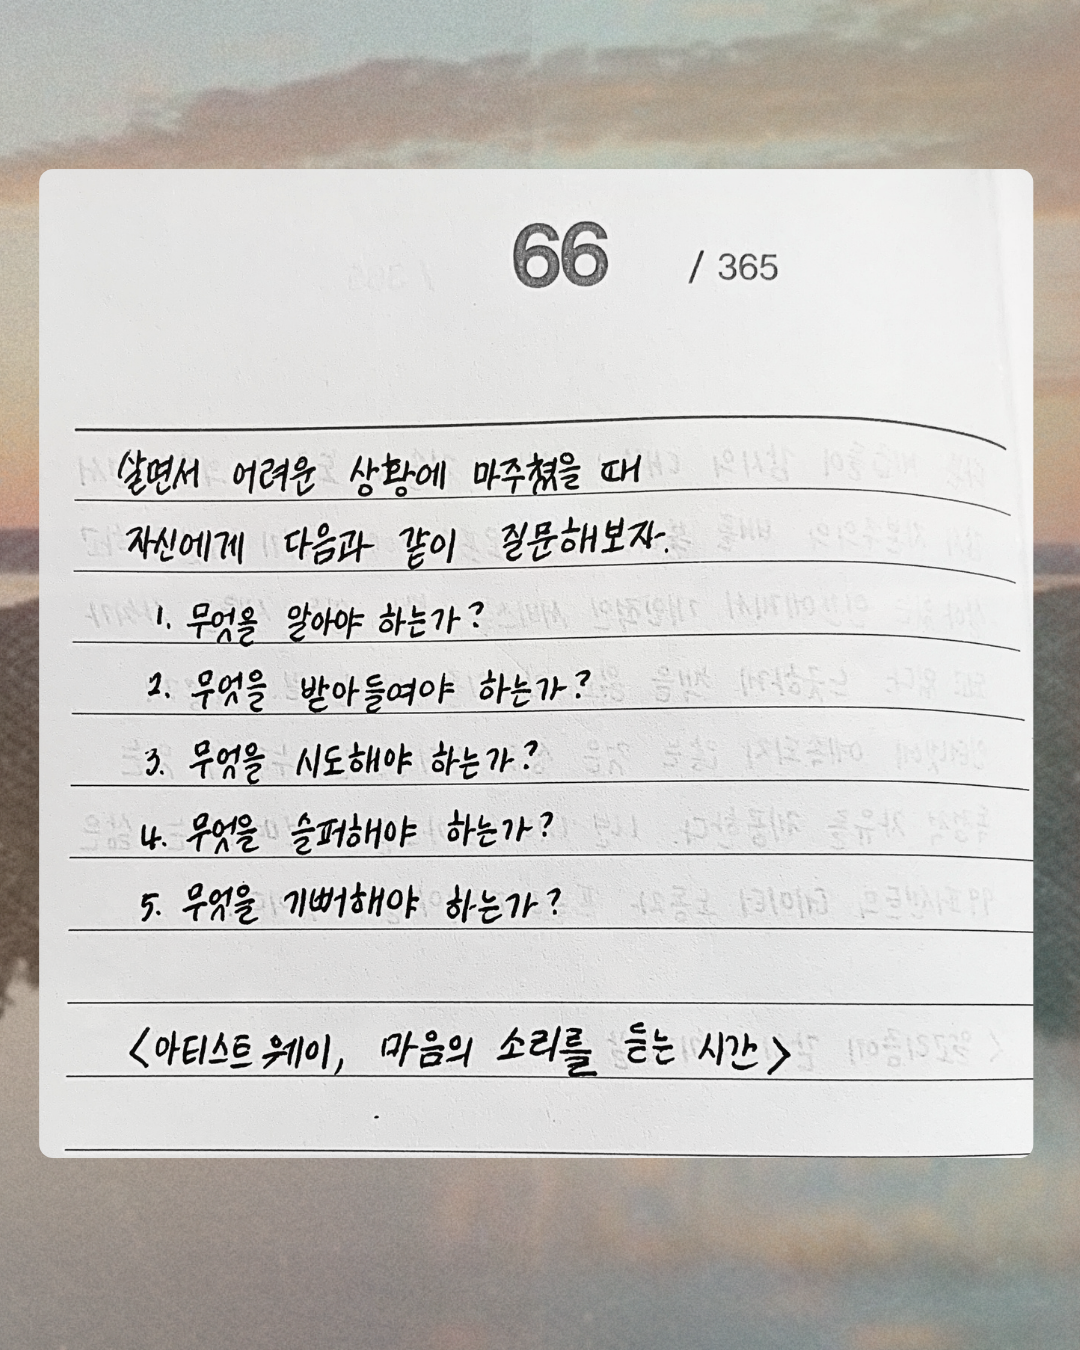 66 / 365
살면서 어려운 상황에 마주쳤을 때
자신에게 다음과 같이 질문해보자.
1. 무엇을 알아야 하는가?
2. 무엇을 받아들여야 하는가?
3. 무엇을 시도해야 하는가?
4. 무엇을 슬퍼해야 하는가?
5. 무엇을 기뻐해야 하는가?
<아티스트 웨이, 마음의 소리를 듣는 시간>